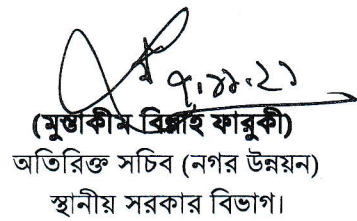 ৭.১১.২১
(মুস্তাকীম বিল্লাহ ফারুকী)
অতিরিক্ত সচিব (নগর উন্নয়ন)
স্থানীয় সরকার বিভাগ।